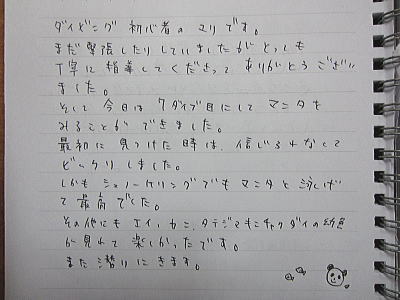 ダイビング初心者のマリです。
まだ緊張したりしていましたがとっても
丁寧に指導してくださって ありがとうござい
ました。
そして今日は7ダイブ目にしてマンタを
みることができました。
最初に見つけた時は、信じられなくて
ビックリしました。
しかもシュノーケリングでもマンタと泳げ
て最高でした。
その他にもエイ、カニ、タテジマキンチャクダイの幼魚
が見れて楽しかったです。
また潜りにきます。